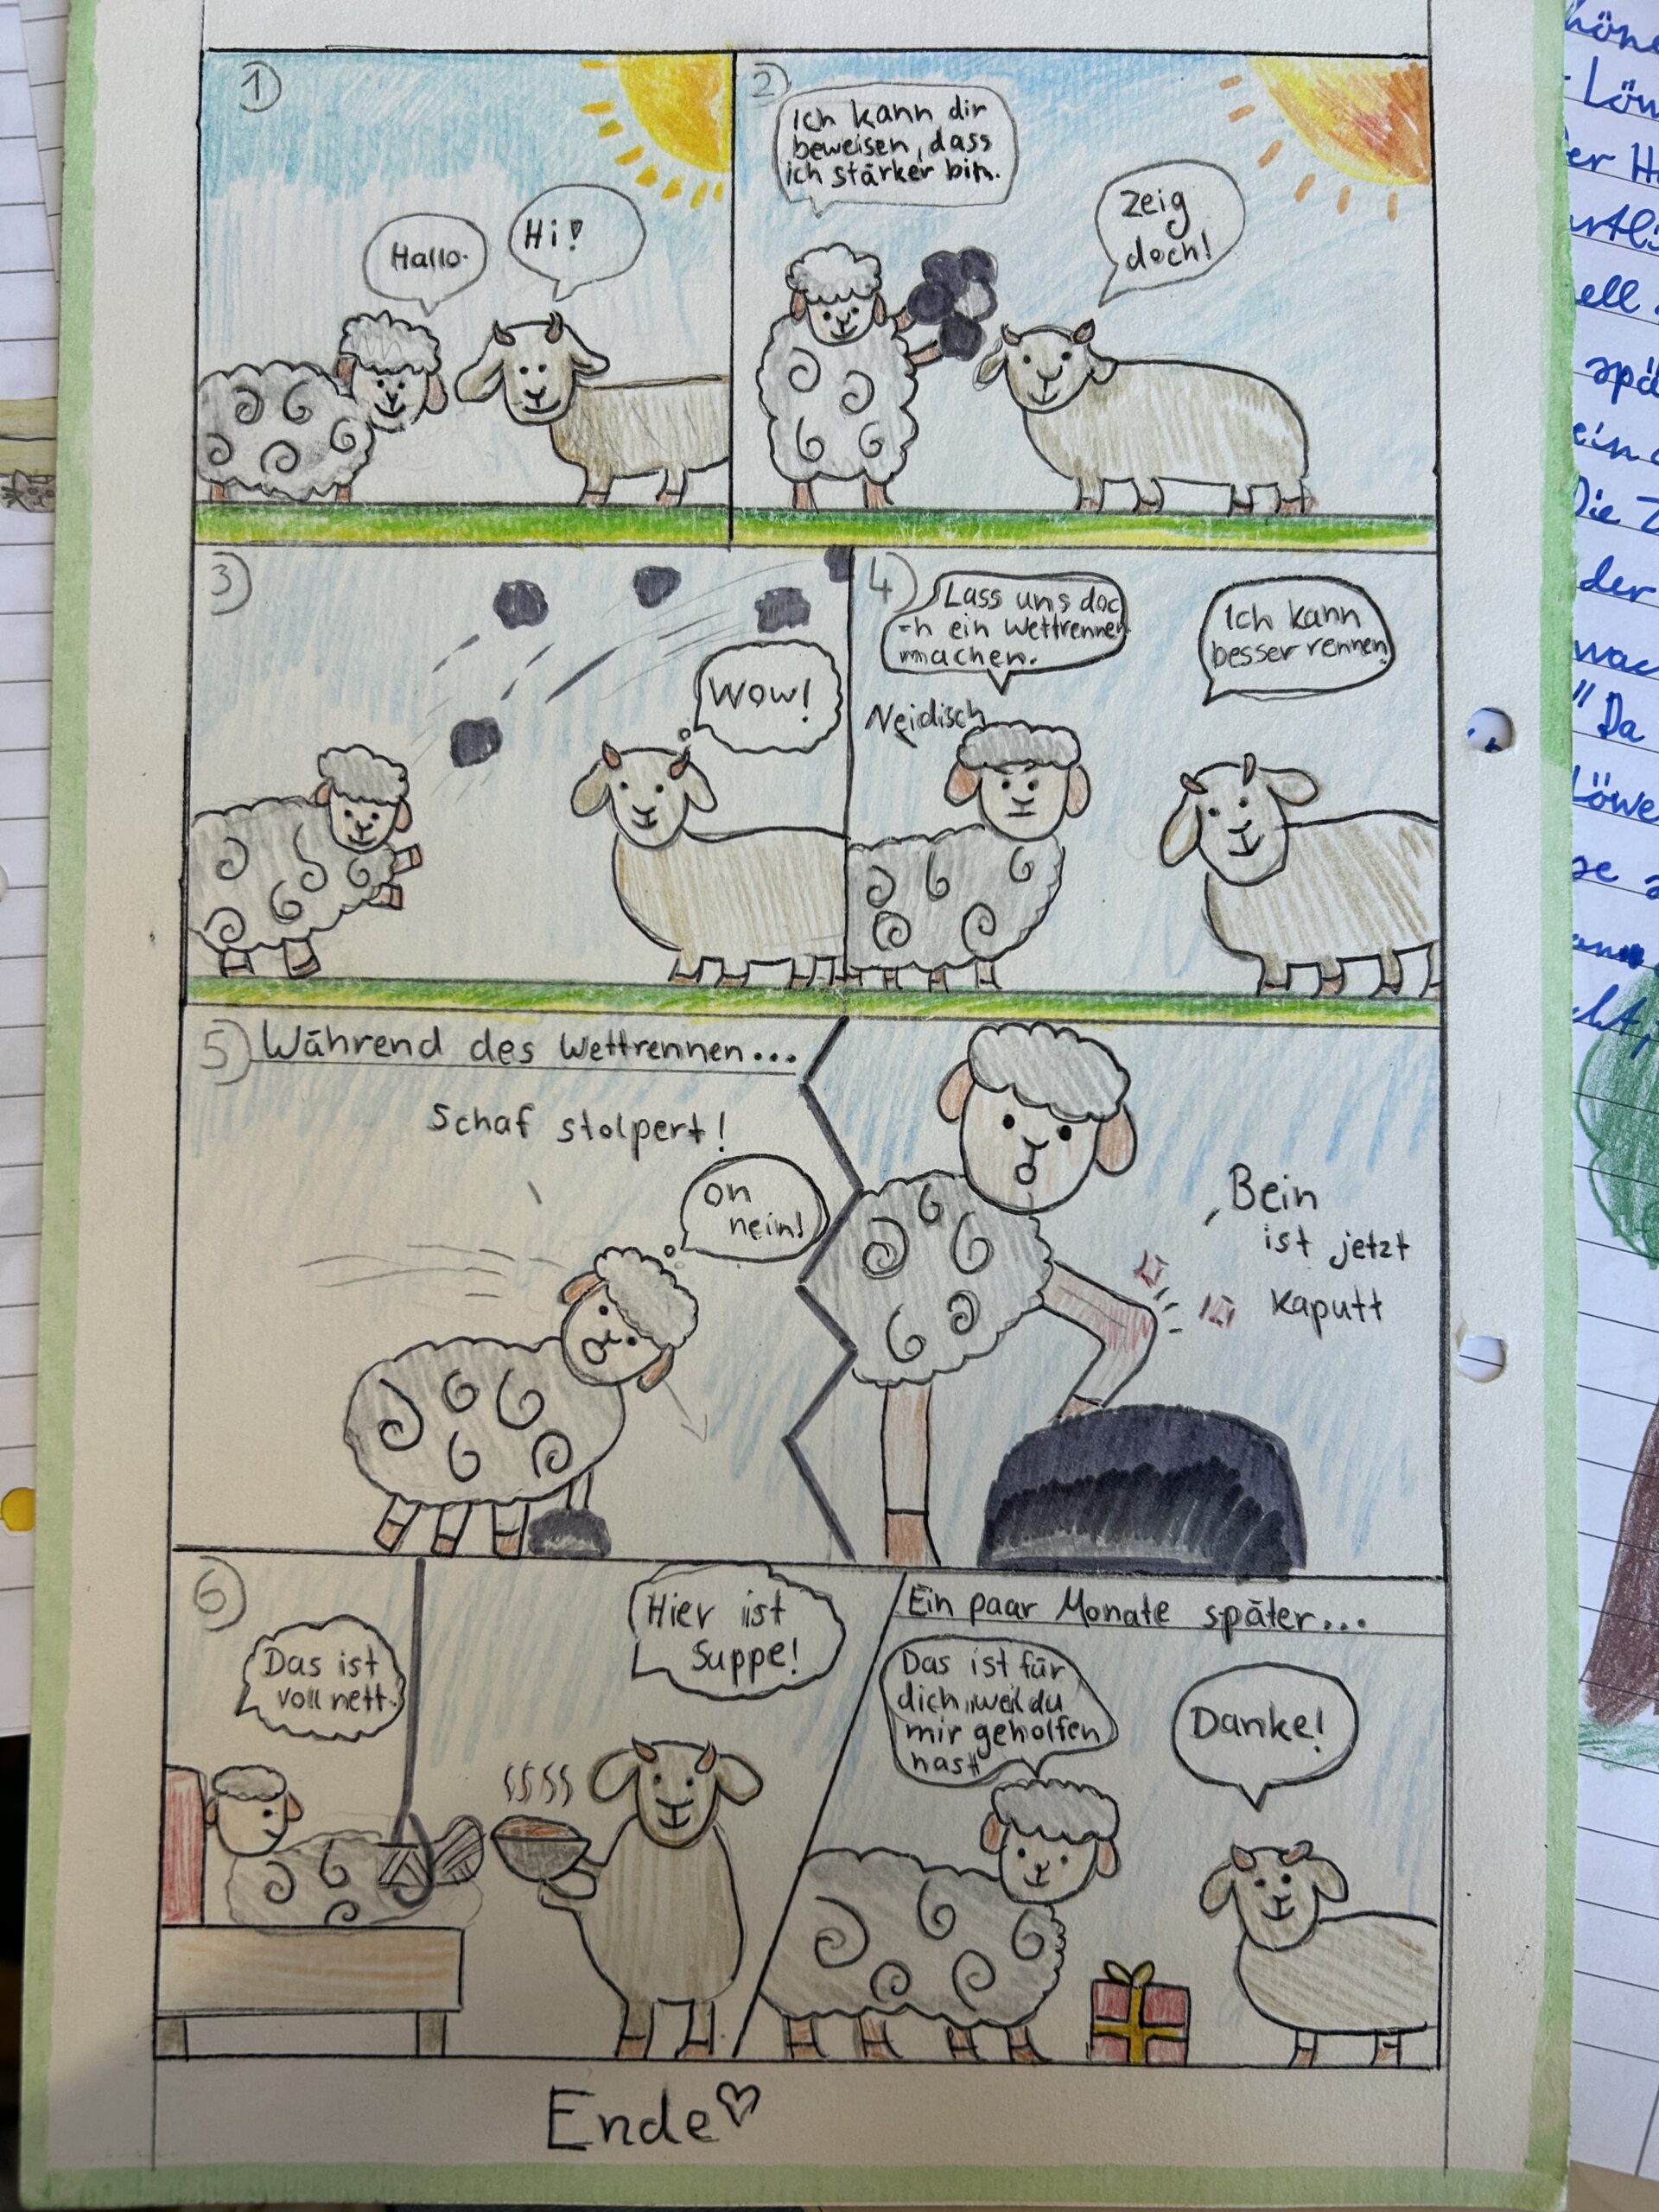 1
Hallo.
Hi!
2
Ich kann dir
beweisen, dass
ich stärker bin.
Zeig
doch!
3
Wow!
4
Lass uns doc
-h ein Wettrennen
machen.
Neidisch
Ich kann
besser rennen.
5 Während des Wettrennen...
Schaf stolpert!
Oh
nein!
Bein
ist jetzt
kaputt
6
Das ist
voll nett.
Hier ist
Suppe!
Ein paar Monate später...
Das ist für
dich, weil du
mir geholfen
hast
Danke!
Ende♡
höne
Löw
er H
ell
spä
ein
Die Z
der
wac
" Da
Löwe